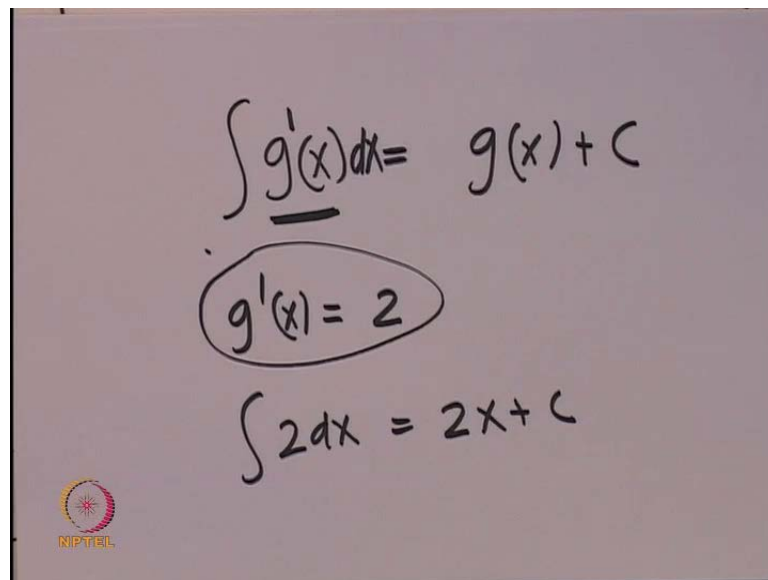 ∫ g'(x) dx = g(x) + C
g'(x) = 2
∫ 2dx = 2x + C
NPTEL